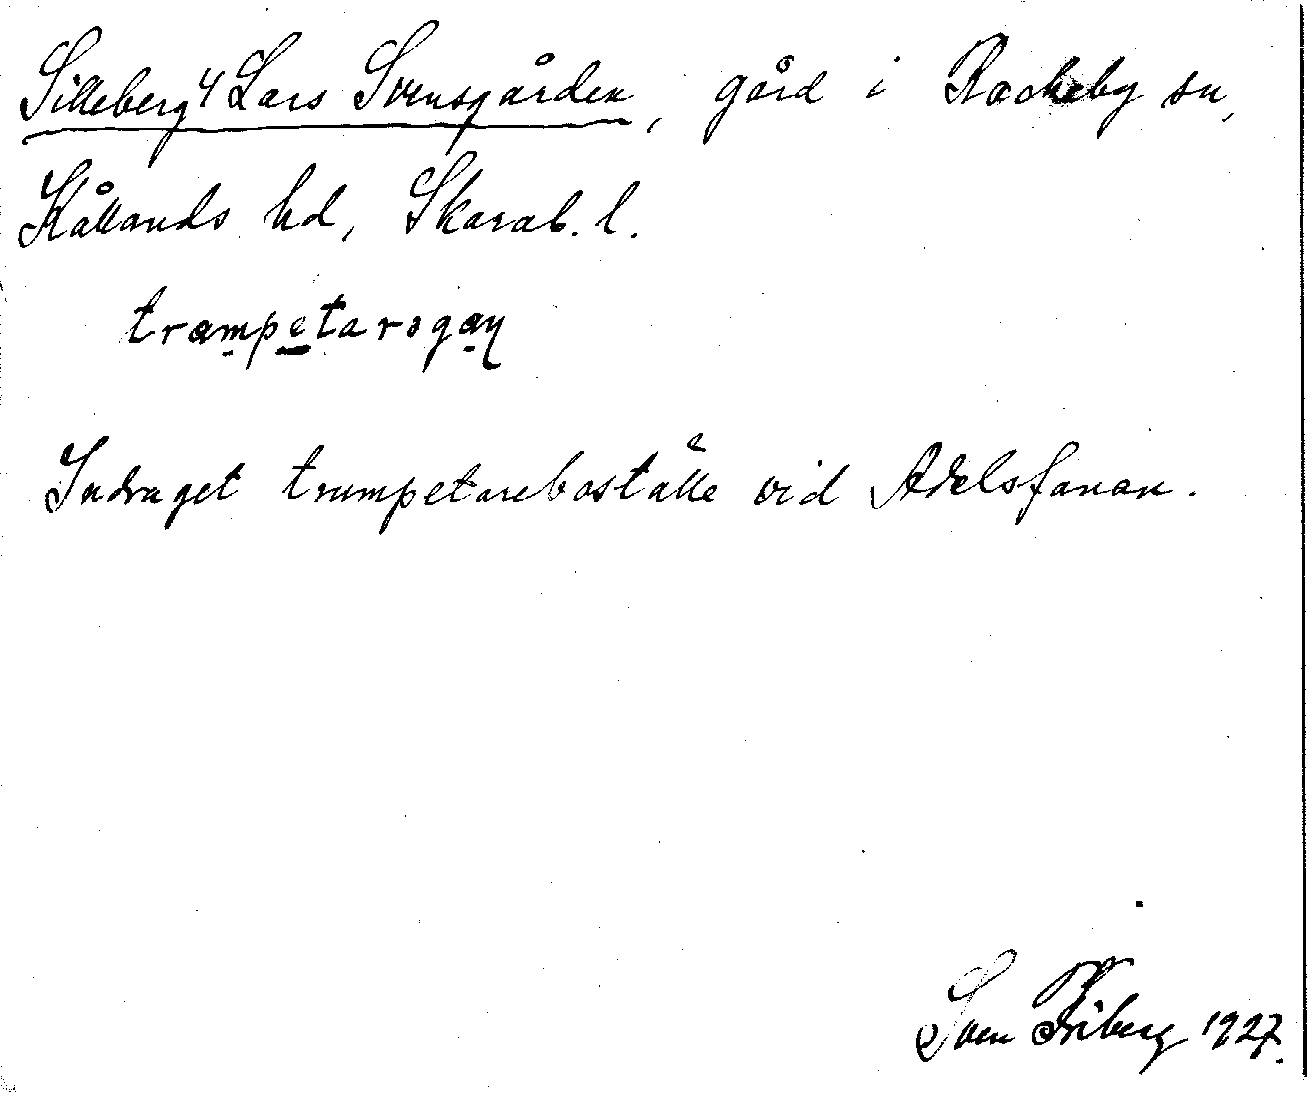 Silleberg 4 Lars Svensgården, gård i Rackeby sn,
Kållands hd, Skarab. l.
trampetarogaŋ
Indraget trumpetareboställe vid Adelsfanan.
Sven Friberg 1927.